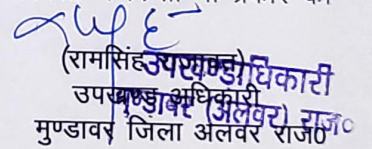 (रामसिंह राजावत)
उपखण्ड अधिकारी
मुण्डावर जिला अलवर राज0
उपखण्डाधिकारी
मुण्डावर (अलवर) राज०